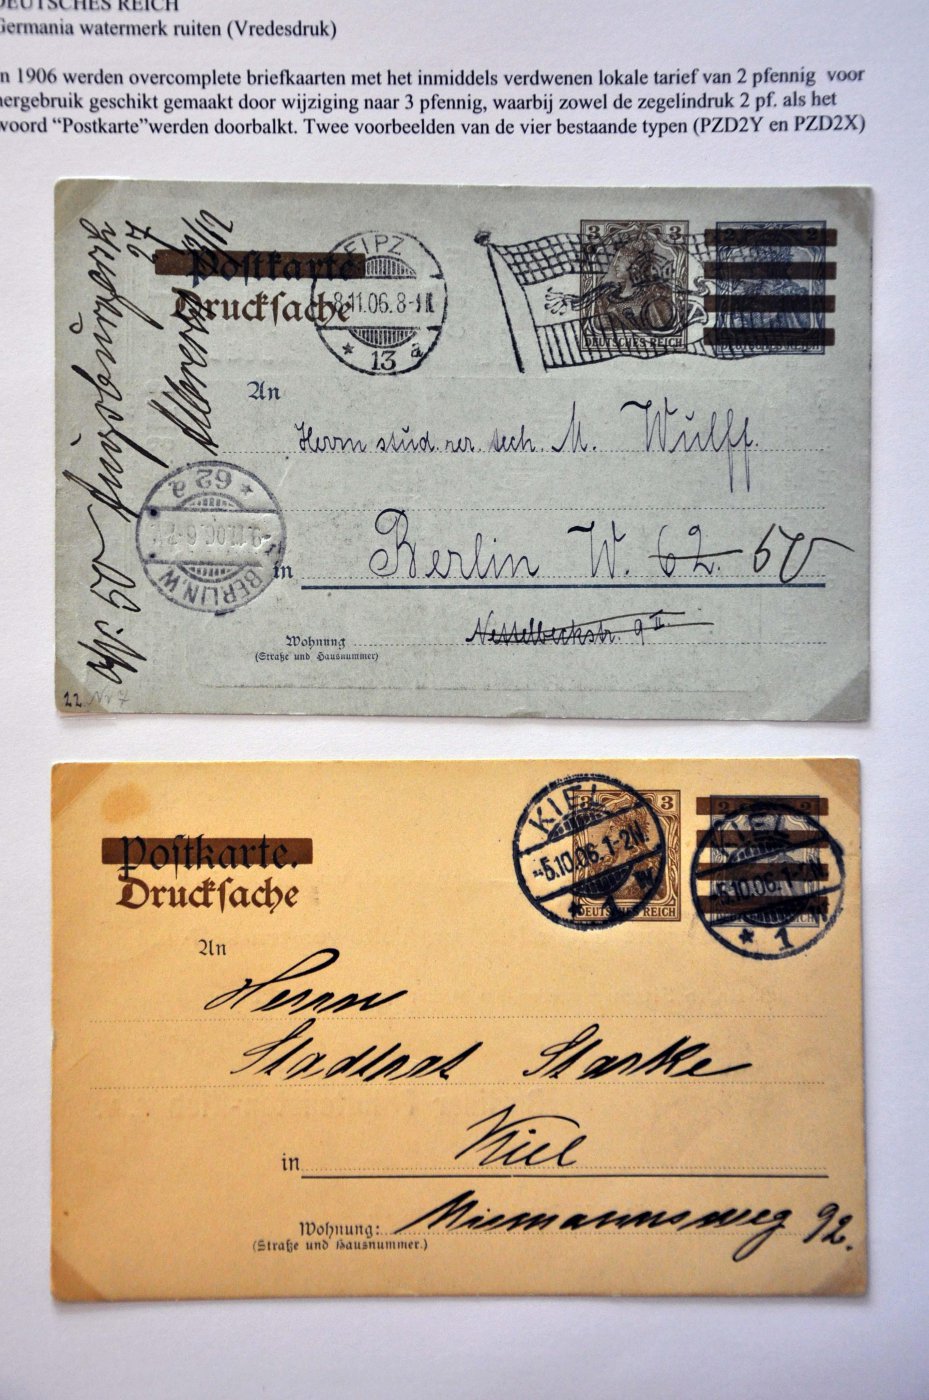 DEUTSCHES REICH
Germania watermerk ruiten (Vredesdruk)
n 1906 werden overcomplete briefkaarten met het inmiddels verdwenen lokale tarief van 2 pfennig voor
hergebruik geschikt gemaakt door wijziging naar 3 pfennig, waarbij zowel de zegelindruk 2 pf. als het
woord “Postkarte”werden doorbalkt. Twee voorbeelden van de vier bestaande typen (PZD2Y en PZD2X)
Postkarte
Drucksache
EIPZ
8.11.06.8-
* 13 a
3 3
DEUTSCHES REICH
2 2
50 Augsburgerstr
27
An
Herrn stud. rer. tech. M. Wulff.
in Berlin W. 62. 50
BERLIN.W
* 62 a
Nettelbeckstr. 9 II.
Wohnung
(Straße und Hausnummer)
22 Nr 7
Postkarte.
Drucksache
KIEL
-5.10.06.1-2N.
* 1
3
DEUTSCHES REICH
KIEL
-5.10.06.1-2N.
* 1
2 2
An
Herrn
Stadtrat Starke
in Kiel
Wohnung: Niemannsweg 92.
(Straße und Hausnummer.)